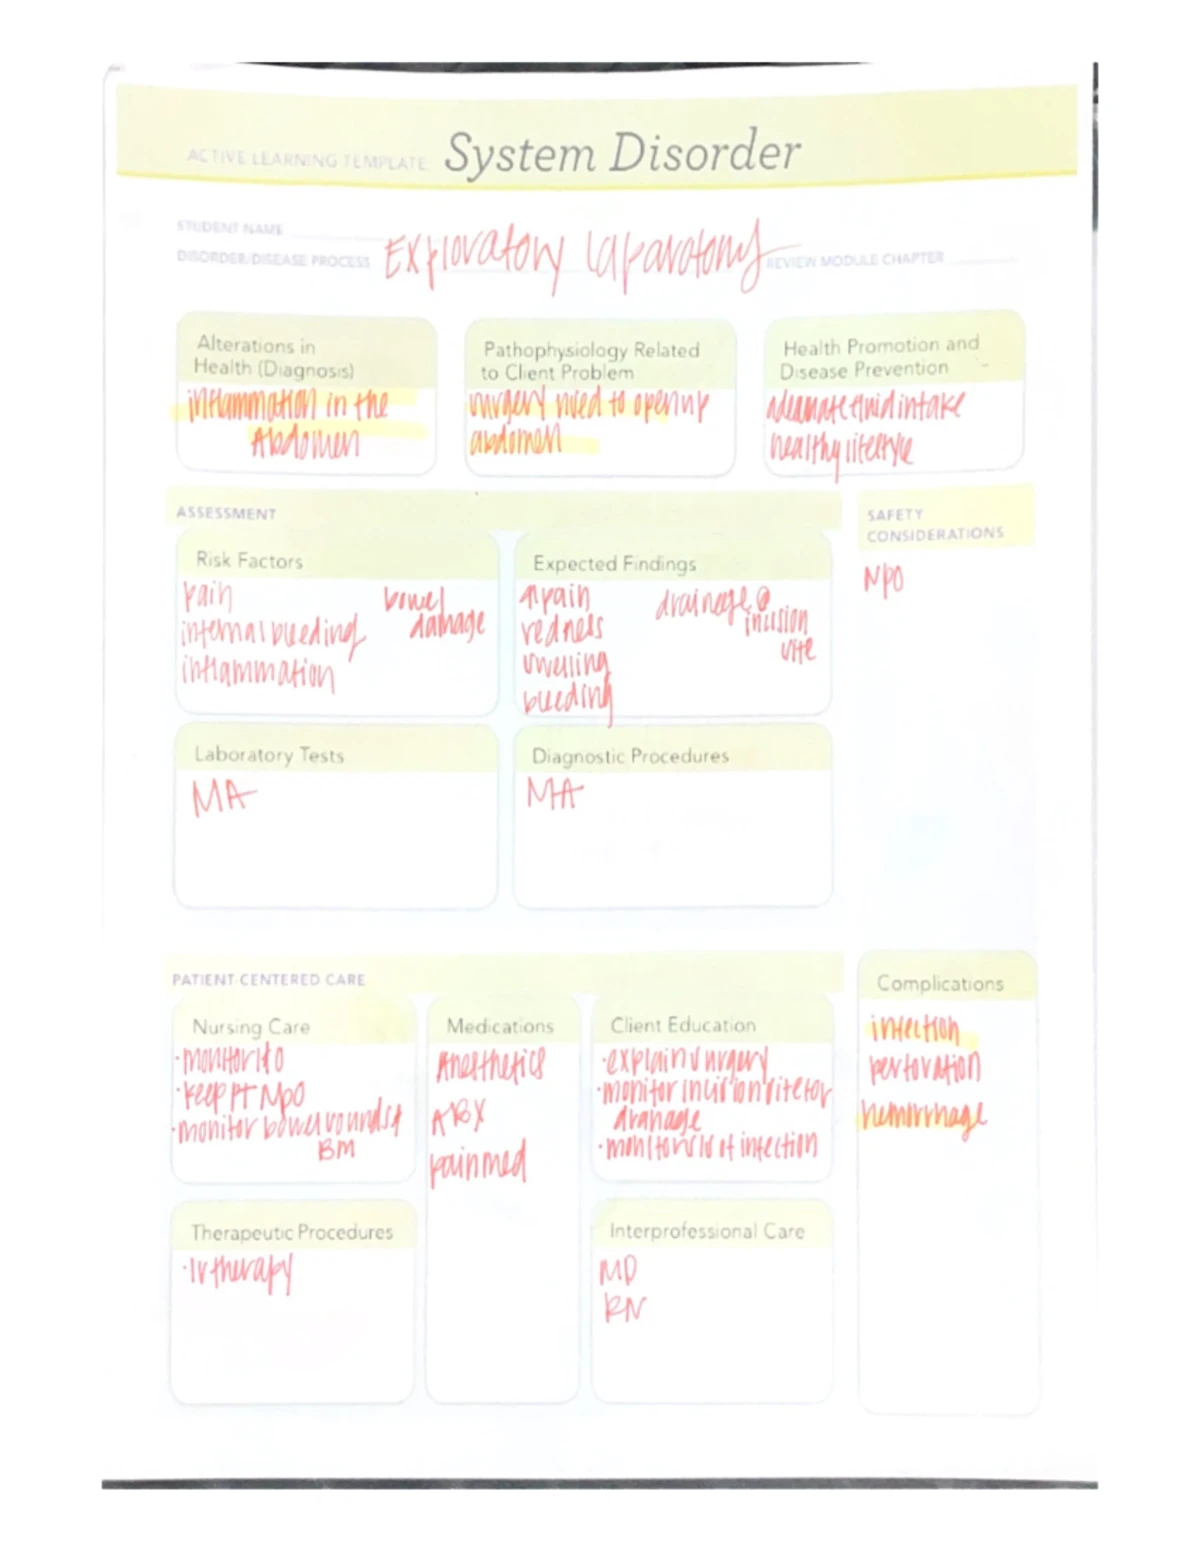 ACTIVE LEARNING TEMPLATE: System Disorder
STUDENT NAME
DISORDER/DISEASE PROCESS Exploratory Laparotomy REVIEW MODULE CHAPTER
Alterations in
Health (Diagnosis)
inflammation in the
Abdomen
Pathophysiology Related
to Client Problem
surgery used to open up
abdomen
Health Promotion and
Disease Prevention
adequate fluid intake
healthy lifestyle
ASSESSMENT
SAFETY
CONSIDERATIONS
Risk Factors
pain
internal bleeding
inflammation
bowel
damage
Expected Findings
pain
redness
swelling
bleeding
drainage @
incision
site
NPO
Laboratory Tests
MA
Diagnostic Procedures
MA
PATIENT-CENTERED CARE
Complications
Nursing Care
·monitor I&O
·keep PT NPO
·monitor bowel sounds &
BM
Medications
Anesthetics
ABX
pain med
Client Education
·explain surgery
·monitor incision site for
dranage
·monitor s/s of infection
infection
perforation
hemorrhage
Therapeutic Procedures
·IV therapy
Interprofessional Care
MD
RN